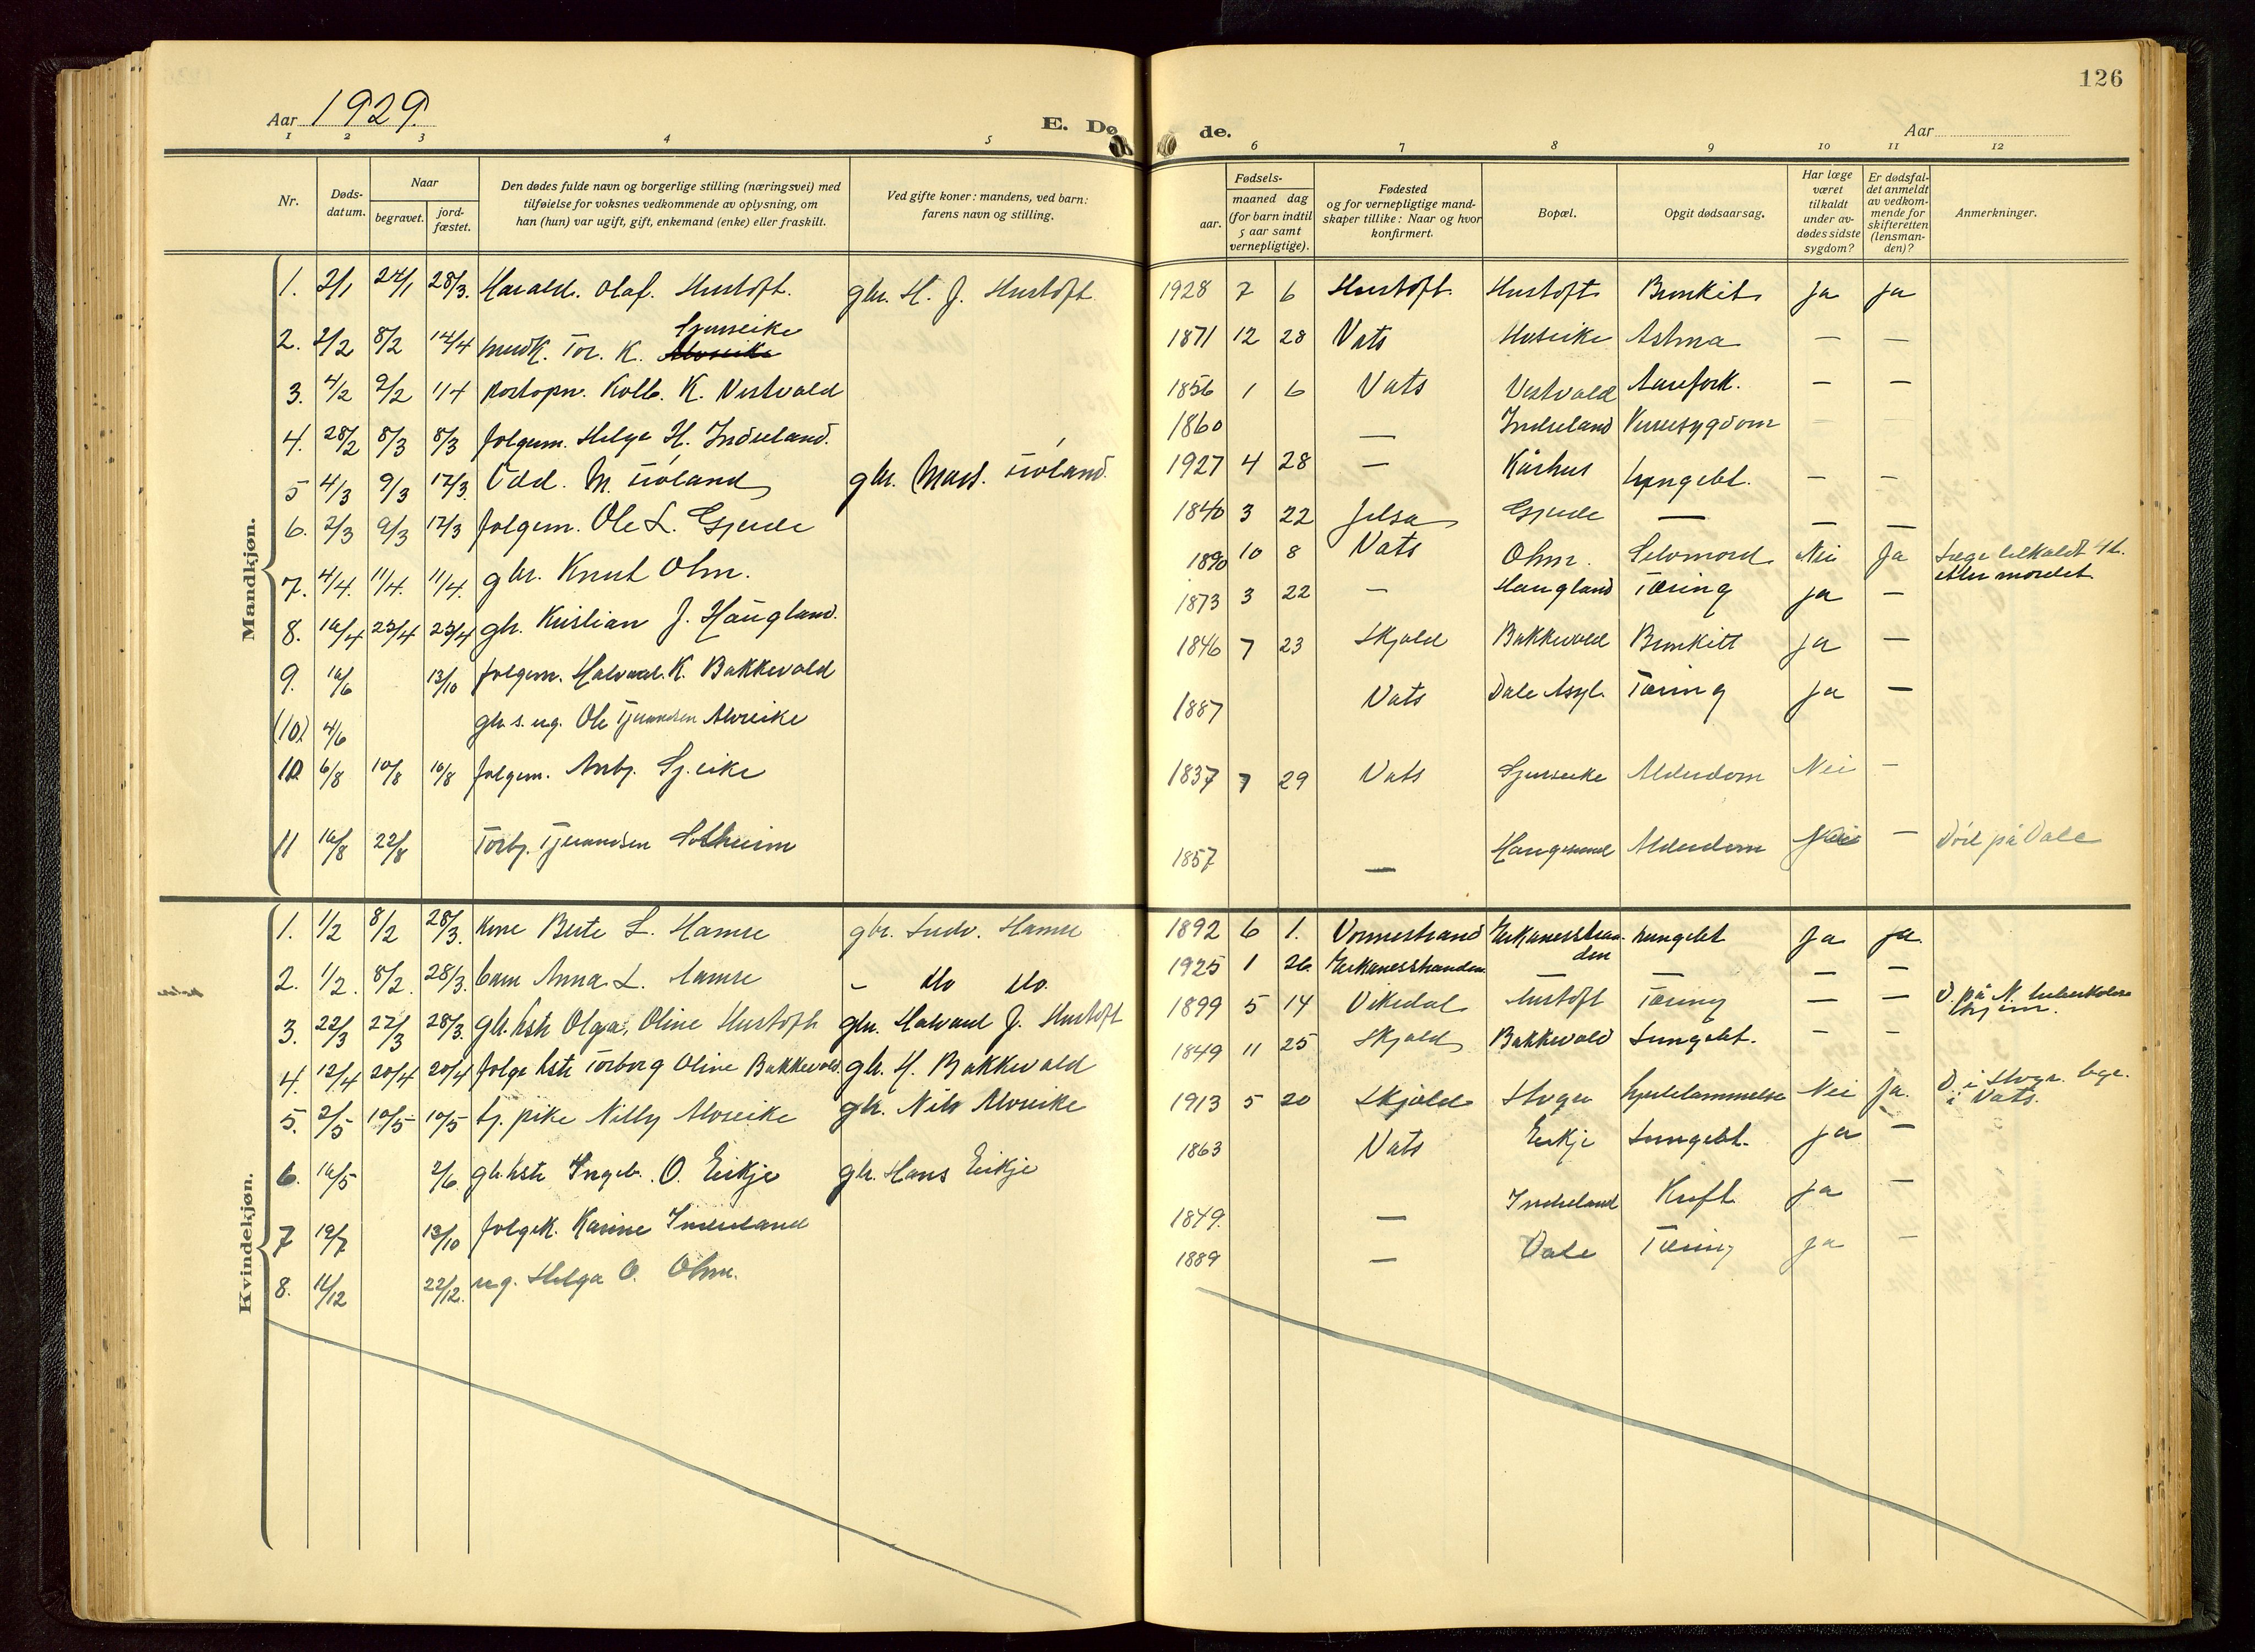 126
Aar 1929
E. Dø de.
Aar
1 2 3 4 5 6 7 8 9 10 11 12
Nr.
Døds-
datum.
Naar
begravet.
jord-
fæstet.
Den dødes fulde navn og borgerlige stilling (næringsvei) med
tilføielse for voksnes vedkommende av oplysning, om
han (hun) var ugift, gift, enkemand (enke) eller fraskilt.
Ved gifte koner: mandens, ved barn:
farens navn og stilling.
Fødsels-
aar.
maaned dag
(for barn indtil
5 aar samt
vernepligtige).
Fødested
og for vernepligtige mand-
skaper tillike: Naar og hvor
konfirmert.
Bopæl.
Opgit dødsaarsag.
Har læge
været
tilkaldt
under av-
dødes sidste
sygdom?
Er dødsfal-
det anmeldt
av vedkom-
mende for
skifteretten
(lensman-
den)?
Anmerkninger.
Mandkjøn.
1. 2/1 24/1 28/3. Harald. Olaf. Hustoft. gbr. H. J. Hustoft 1928 7 6 Hustoft. Hustoft Bronkit Ja Ja
Gjerseike
2. 2/2 8/2 14/4 Tor. K. 1871 12 28 Vats Astma — —
3. 4/2 9/2 1/4 postopn. Kolb. K. Vestvold 1856 1 6 Vats Vestvold Aarefork. — —
4. 28/2 8/3 8/3 folgem. Helge H. Indreland. 1860 — Indreland
5 4/3 9/3 17/3. Odd. M. Tröland gbr. Mart. Tröland. 1927 4 28 — Kårhus Lungebt. — —
6. 2/3 9/3 17/3 folgem. Ole L. Gjerde 1840 3 22 Jelsa Gjerde — — —
7. 4/4. 11/4. 11/4. gbr. Knut Ohm. 1890 10 8 Vats Ohm. Selvmord Nei Ja Læge tilkaldt 4 t.
etter mordet.
8. 16/4 23/4 23/4 gbr. Kristian J. Haugland. 1873 3 22 — Haugland Tæring Ja —
9. 16/6 13/10 folgem. Halvard. K. Bakkevold 1846 7 23 Skjold Bakkevold Bronkitt Ja —
(10) 4/6 gbr. s. ug. Ole Tjerandsen Alvseike 1887 Vats Dale Asyl. Tæring Ja —
10. 6/8 10/8 10/8 folgem. Anbj. Gj.eike 1837 7 29 Vats Gjerseike Alderdom Nei —
11 16/8 22/8 Torbj. Tjerandsen Solheim 1857 — Haugesund Alderdom Nei — Död på Dale
Kvindekjøn.
1. 1/2 8/2 28/3. kone Berte L. Hamre gbr. Ludv. Hamre 1892 6 1. Vormestrand Eikanesstran-
den Lungebt Ja Ja
2. 1/2. 8/2. 28/3. barn Anna L. Hamre — do do. 1925 1 26. Eikanesstranden — — — —
3. 22/3 27/3 28/3 gbr. hstr Olga, Oline Hustoft gbr. Halvard J. Hustoft 1899 5 14 Vikedal Hustoft Tæring — — D. på N. tuberkulose
hjem.
4. 12/4 20/4 20/4 folge hstr Torborg Oline Bakkevold. gbr. H. Bakkevold 1849 11 25 Skjold Bakkevold Lungebt. — —
5. 2/5 10/5 10/5 tj. pike Nilly Alvseike gbr. Nils Alvseike 1913 5 20 Skjold Hjertelammelse Nei Ja. D. i bgr.
i Vats.
6. 16/5 2/6. gbr. hstr Ingeb. O. Eikje gbr. Hans Eikje 1863 Vats Eikje Lungebt. Ja —
7 19/7 13/10 folgek. Karine Indreland 1849. — Indreland Kreft Ja —
8. 11/12 22/12. ug. Helga O. Ohm. 1889 — Dale Tæring Ja —